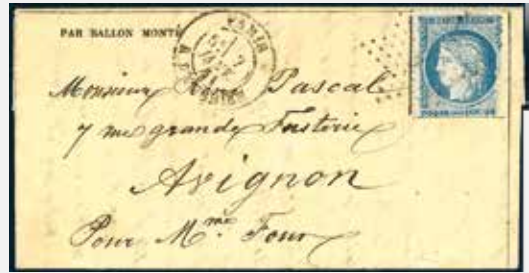 PAR BALLON MONTÉ
Monsieur René Pascal
7 rue grande Fusterie
Avignon
Pour Mme Four